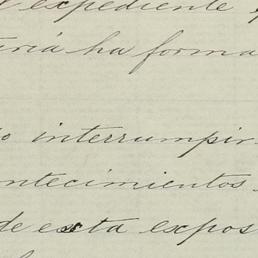 expediente
ha forma
interrumpir
ntecimientos
de esta expos